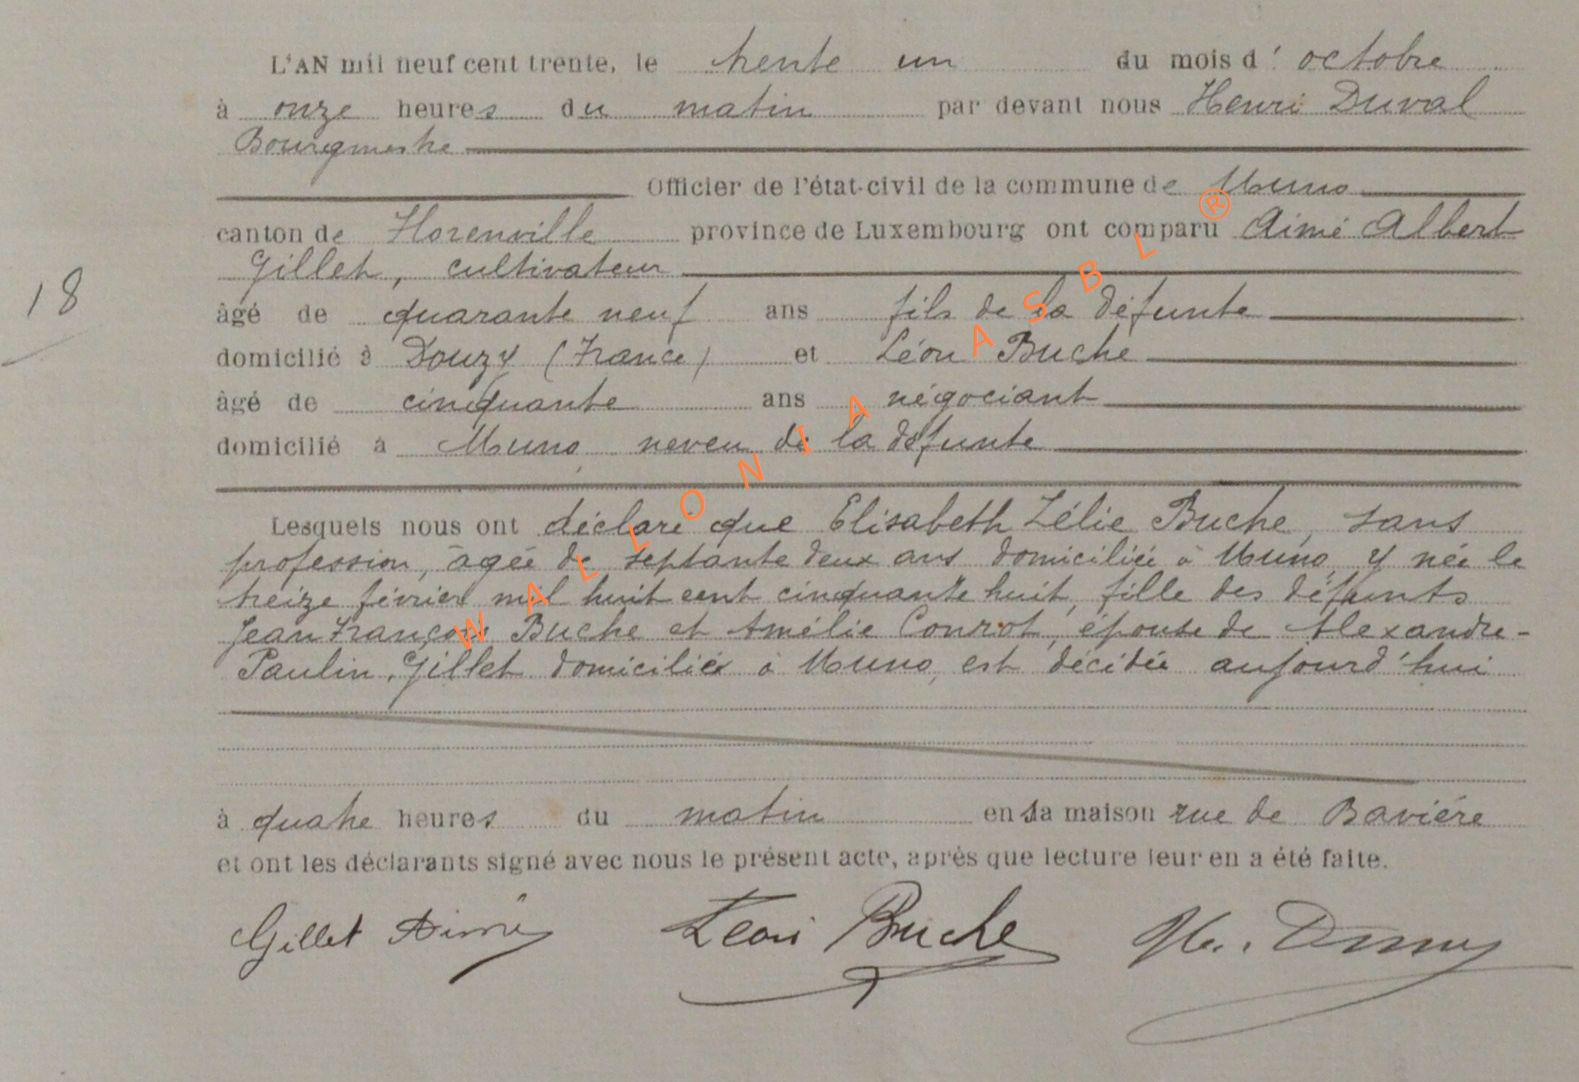 L'AN mil neuf cent trente, le trente un du mois d' octobre
à onze heures du matin par devant nous Henri Duval
Bourgmestre
Officier de l'état-civil de la commune de Muno
canton de Florenville province de Luxembourg ont comparu Aimé Albert
Gillet, cultivateur
âgé de quarante neuf ans fils de la défunte
18
domicilié à Douzy (France) et Léon Buche
âgé de cinquante ans négociant
domicilié à Muno neveu de la défunte
Lesquels nous ont déclaré que Elisabeth Zélie Buche, sans
profession, âgée de septante deux ans domiciliée à Muno, y née le
treize février mil huit cent cinquante huit, fille des défunts
Jean François Buche et Amélie Conrot, épouse de Alexandre-
Paulin Gillet domiciliée à Muno, est décédée aujourd'hui
à quatre heures du matin en sa maison rue de Bavière
et ont les déclarants signé avec nous le présent acte, après que lecture leur en a été faite.
Gillet Aimé Léon Buche H. Duval
WALLONIA ASBL ®